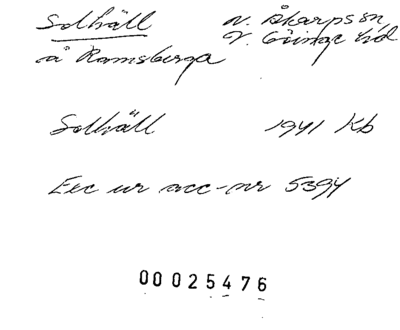 Solhäll
å Ramsberga
N. Åkarps sn,
V. Göinge hd
Solhäll 1941 Kb
Exc ur acc-nr 5394
00025476